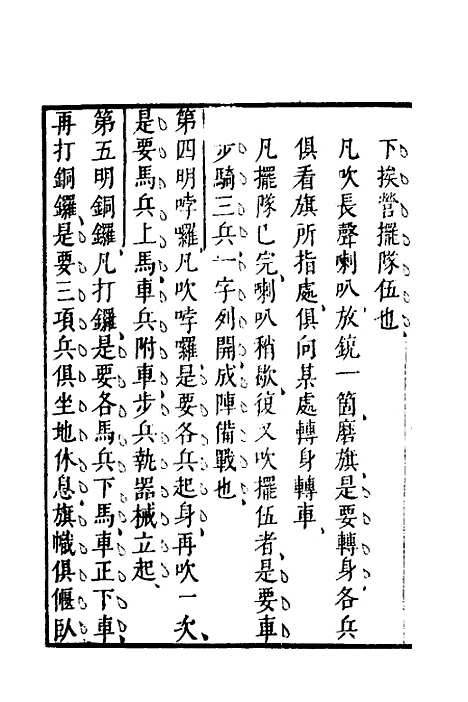 下挨營擺隊伍也
凡吹長聲喇叭放銃一箇磨旗是要轉身各兵
俱看旗所指處俱向某處轉身轉車
凡擺隊已完喇叭稍歇復又吹擺伍者是要車
步騎三兵一字列開成陣備戰也
第四明哱囉凡吹哱囉是要各兵起身再吹一次
是要馬兵上馬車兵附車步兵執器械立起
第五明銅鑼凡打鑼是要各馬兵下馬車正下車
再打銅鑼是要三項兵俱坐地休息旗幟俱偃臥